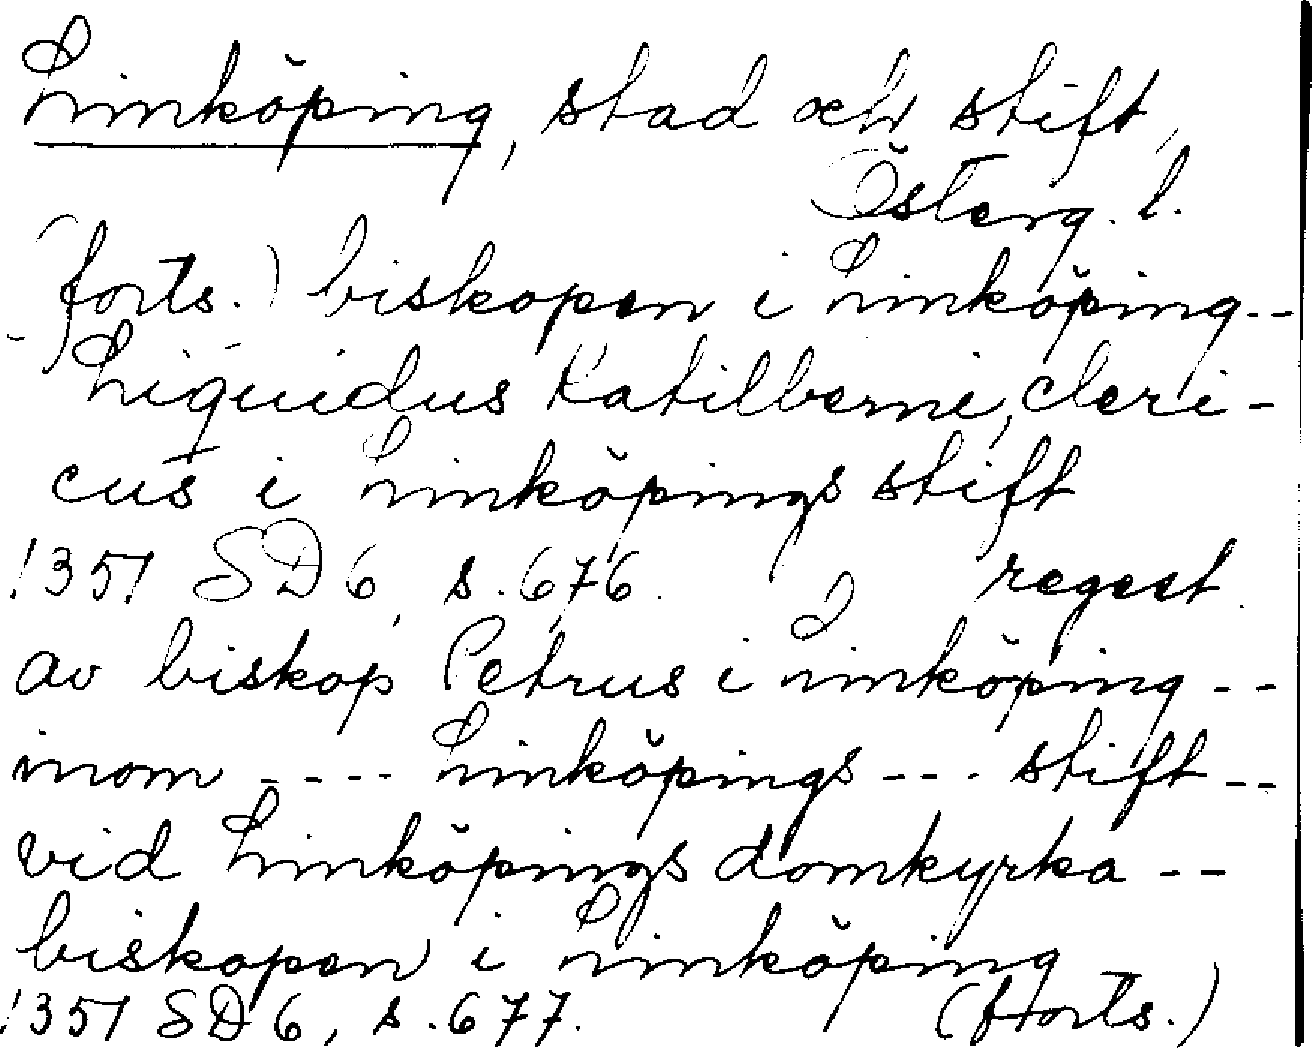 Linköping, stad och stift,
Österg. l.
(forts.) biskopen i Linköping--
Liquidus Katilberni, cleri-
cus i Linköpings stift
1351 SD 6, s. 676. regest
av biskop Petrus i Linköping--
inom ---- Linköpings --- stift--
vid Linköpings domkyrka --
biskopen i Linköping
1351 SD 6, s. 677. (forts.)